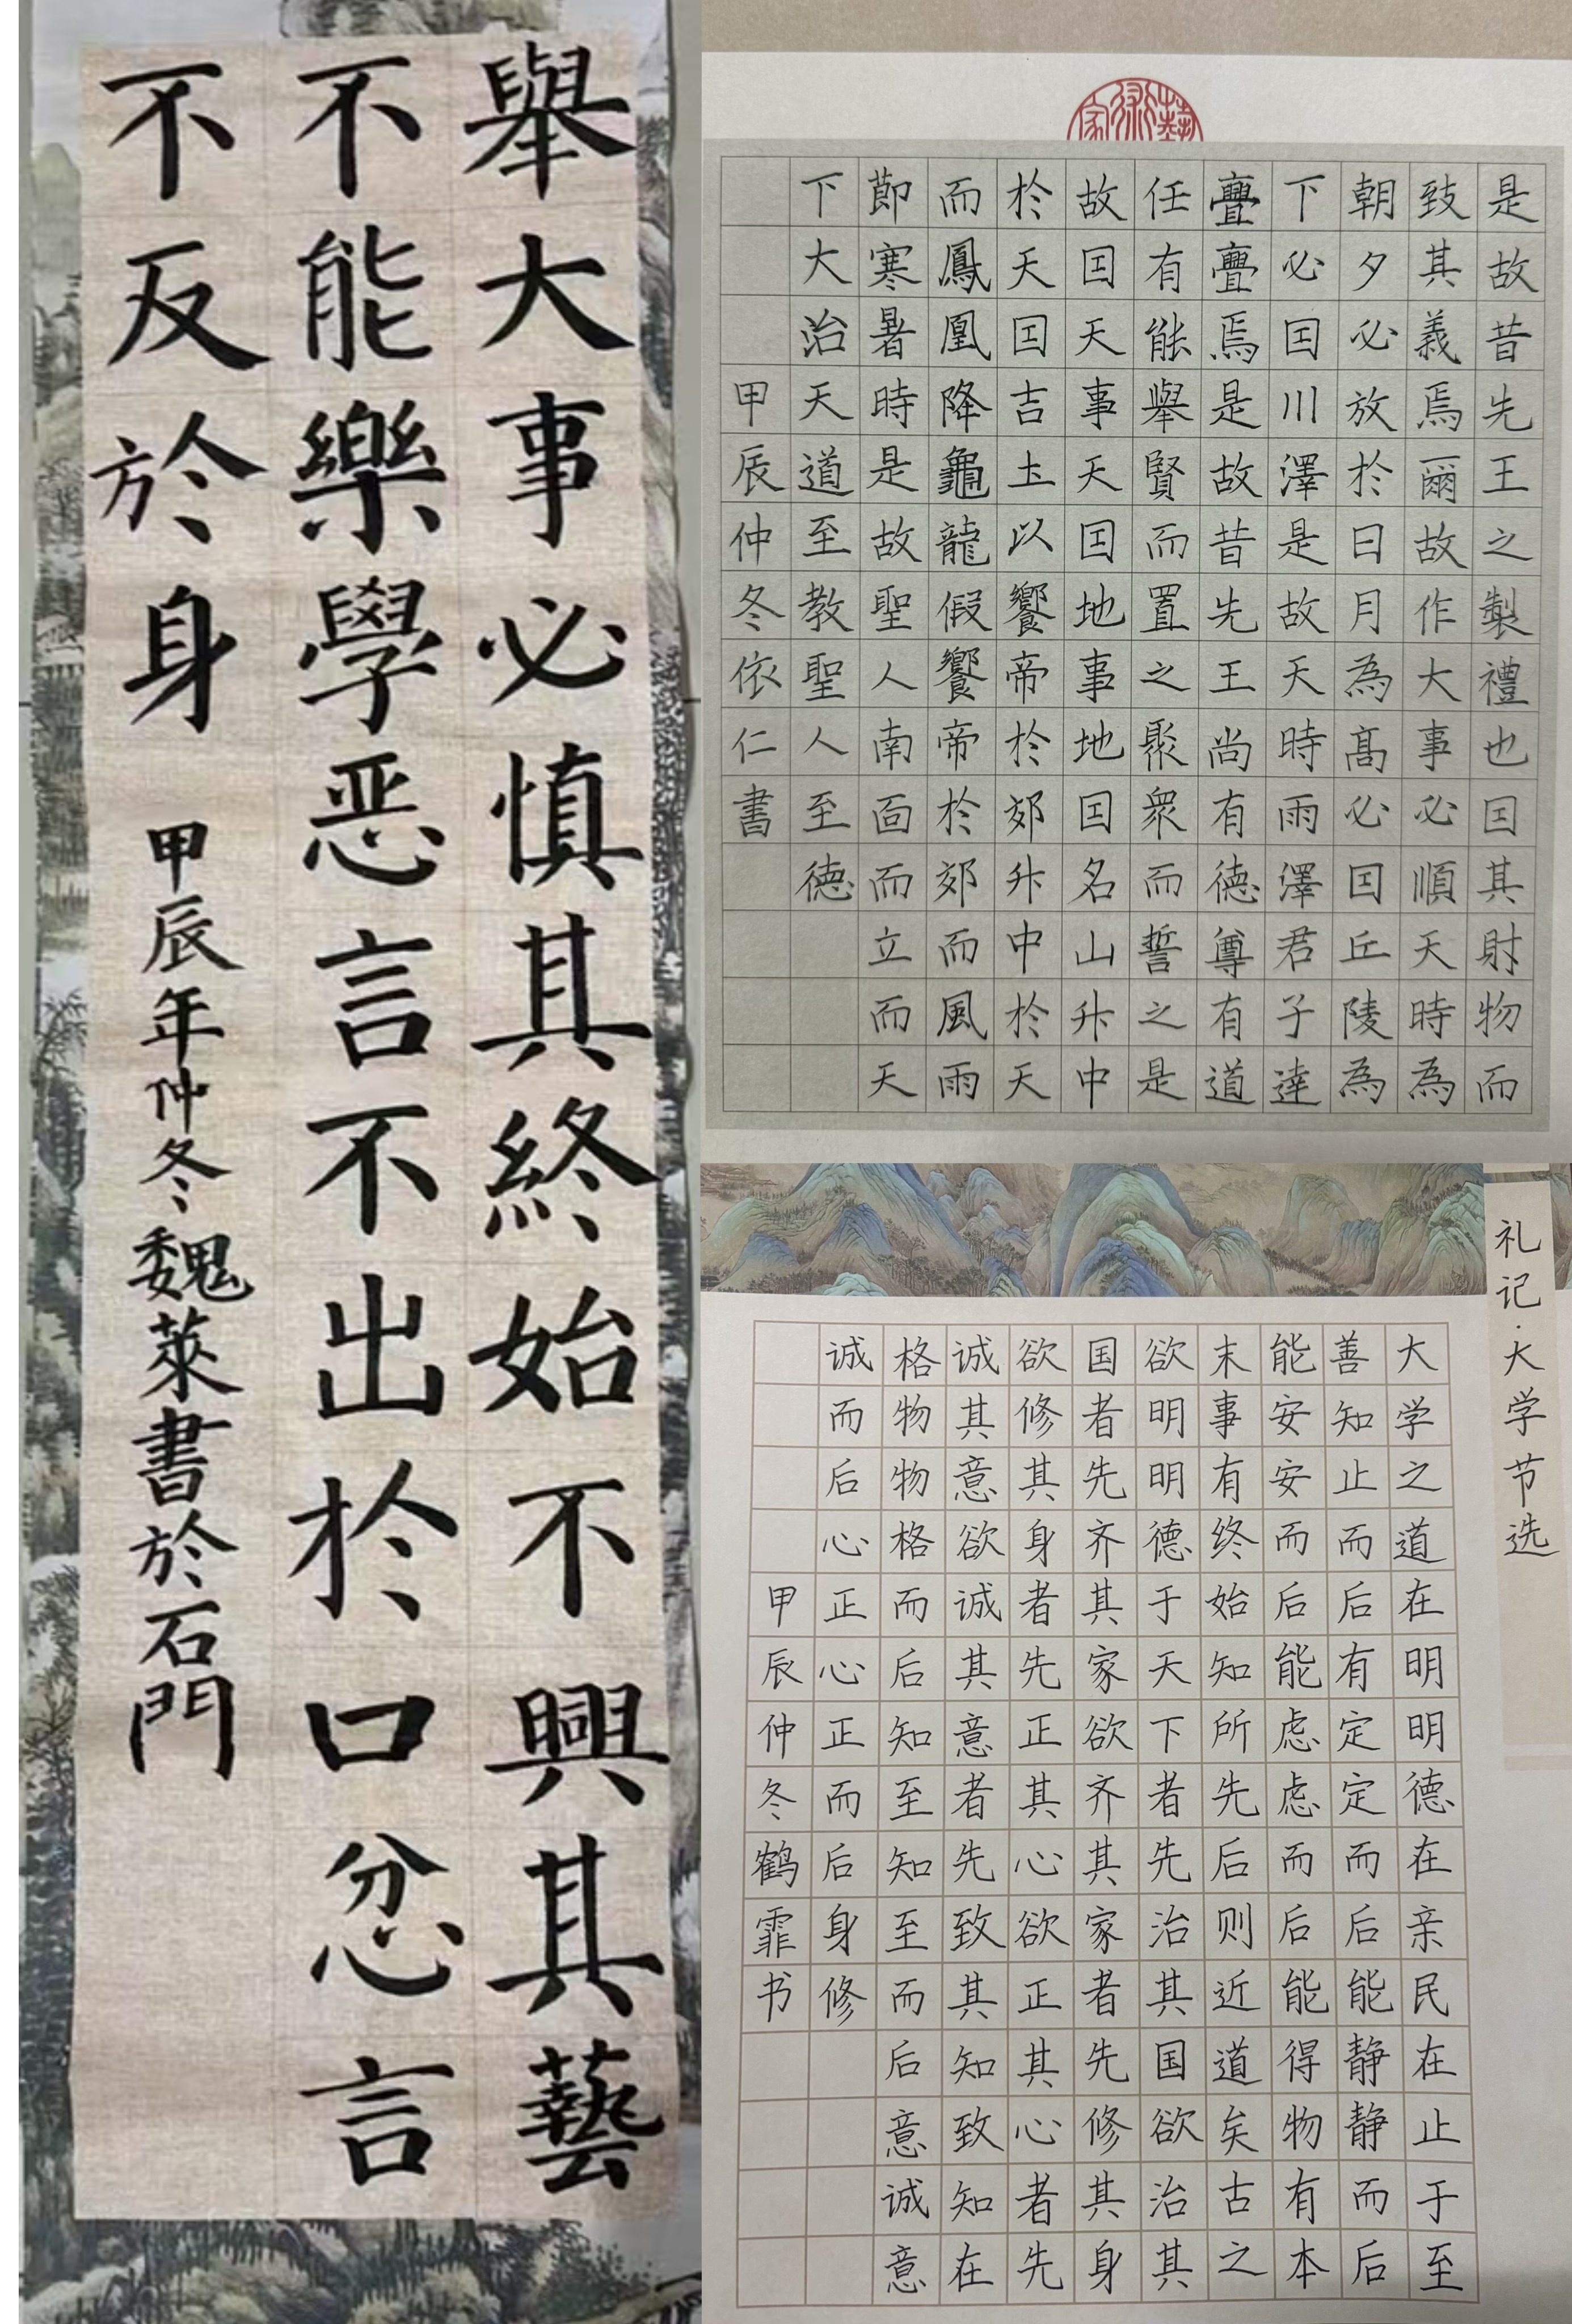 舉大事必慎其終始不興其藝
不能樂學恶言不出於口忿言
不反於身 甲辰年仲冬魏萊書於石門
藝術家
是故昔先王之製禮也囙其財物而
致其義焉爾故作大事必順天時為
朝夕必放於日月為髙必囙丘陵為
下必囙川澤是故天時雨澤君子達
亹亹焉是故昔先王尚有德尊有道
任有能舉賢而置之聚衆而誓之是
故囙天事天囙地事地囙名山升中
於天囙吉土以饗帝於郊升中於天
而鳳凰降龜龍假饗帝於郊而風雨
節寒暑時是故聖人南面而立而天
下大治天道至教聖人至德
甲辰仲冬依仁書
礼记·大学节选
大学之道在明明德在亲民在止于至
善知止而后有定定而后能静静而后
能安安而后能虑虑而后能得物有本
末事有终始知所先后则近道矣古之
欲明明德于天下者先治其国欲治其
国者先齐其家欲齐其家者先修其身
欲修其身者先正其心欲正其心者先
诚其意欲诚其意者先致其知致知在
格物物格而后知至知至而后意诚意
诚而后心正心正而后身修
甲辰仲冬鹤霏书